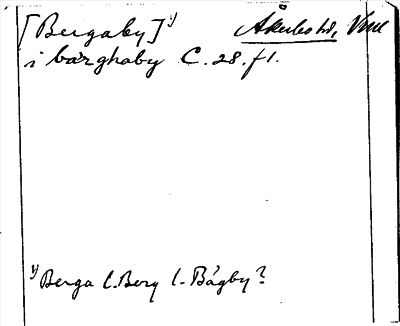 [Bergaby]¹⁾ Åkerbo hd, Vml
i bærghaby C. 28. f 1.
¹⁾ Berga l. Berg l. Bågby?